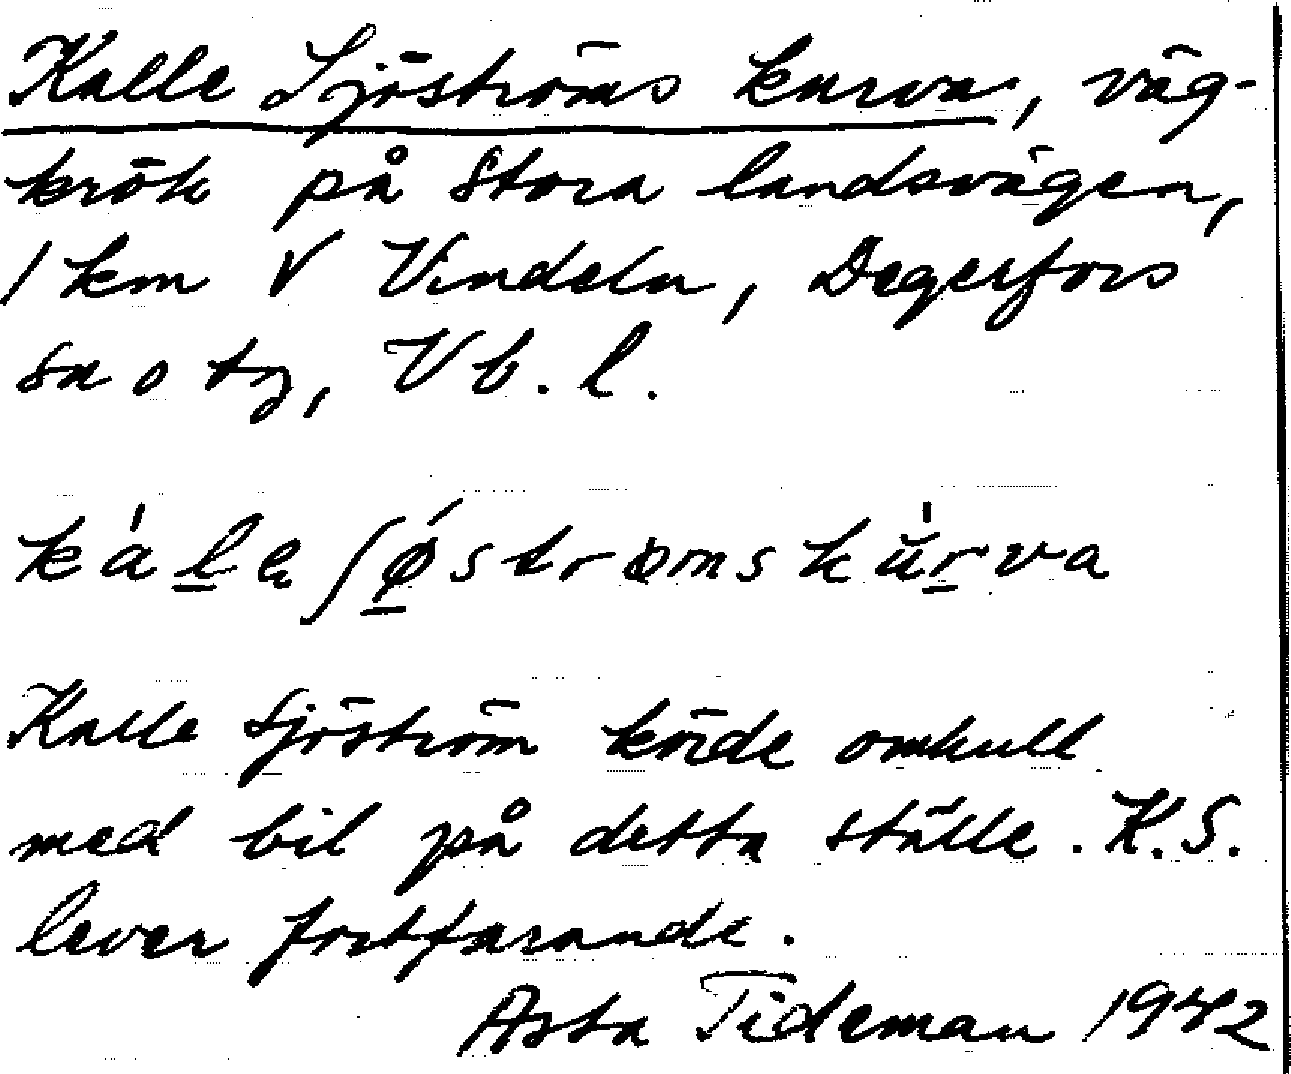 Kalle Sjöströms kurva, väg-
krök på stora landsvägen,
1 km V Vindeln, Degerfors
sn o tg, Vb. l.
kálę ʃǿstrømskúrva
Kalle Sjöström körde omkull
med bil på detta ställe. K.S.
lever fortfarande.
Asta Tideman 1942